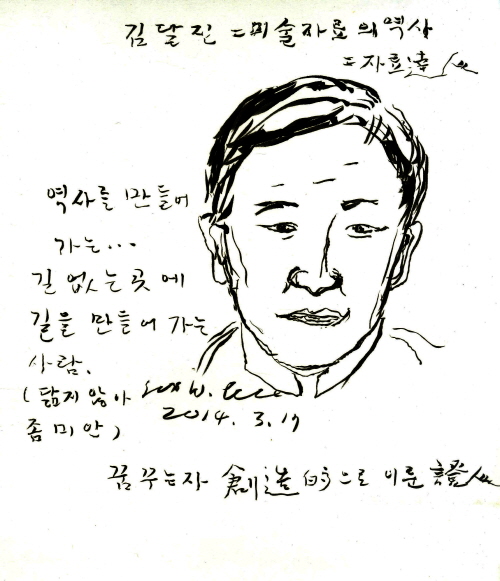 김달진 = 미술자료의 역사
= 자료達人
역사를 만들어
가는...
길 없는 곳에
길을 만들어 가는
사람.
(닮지 않아
좀 미안)
2014. 3. 17
꿈꾸는자 創造的으로 이룬 證人